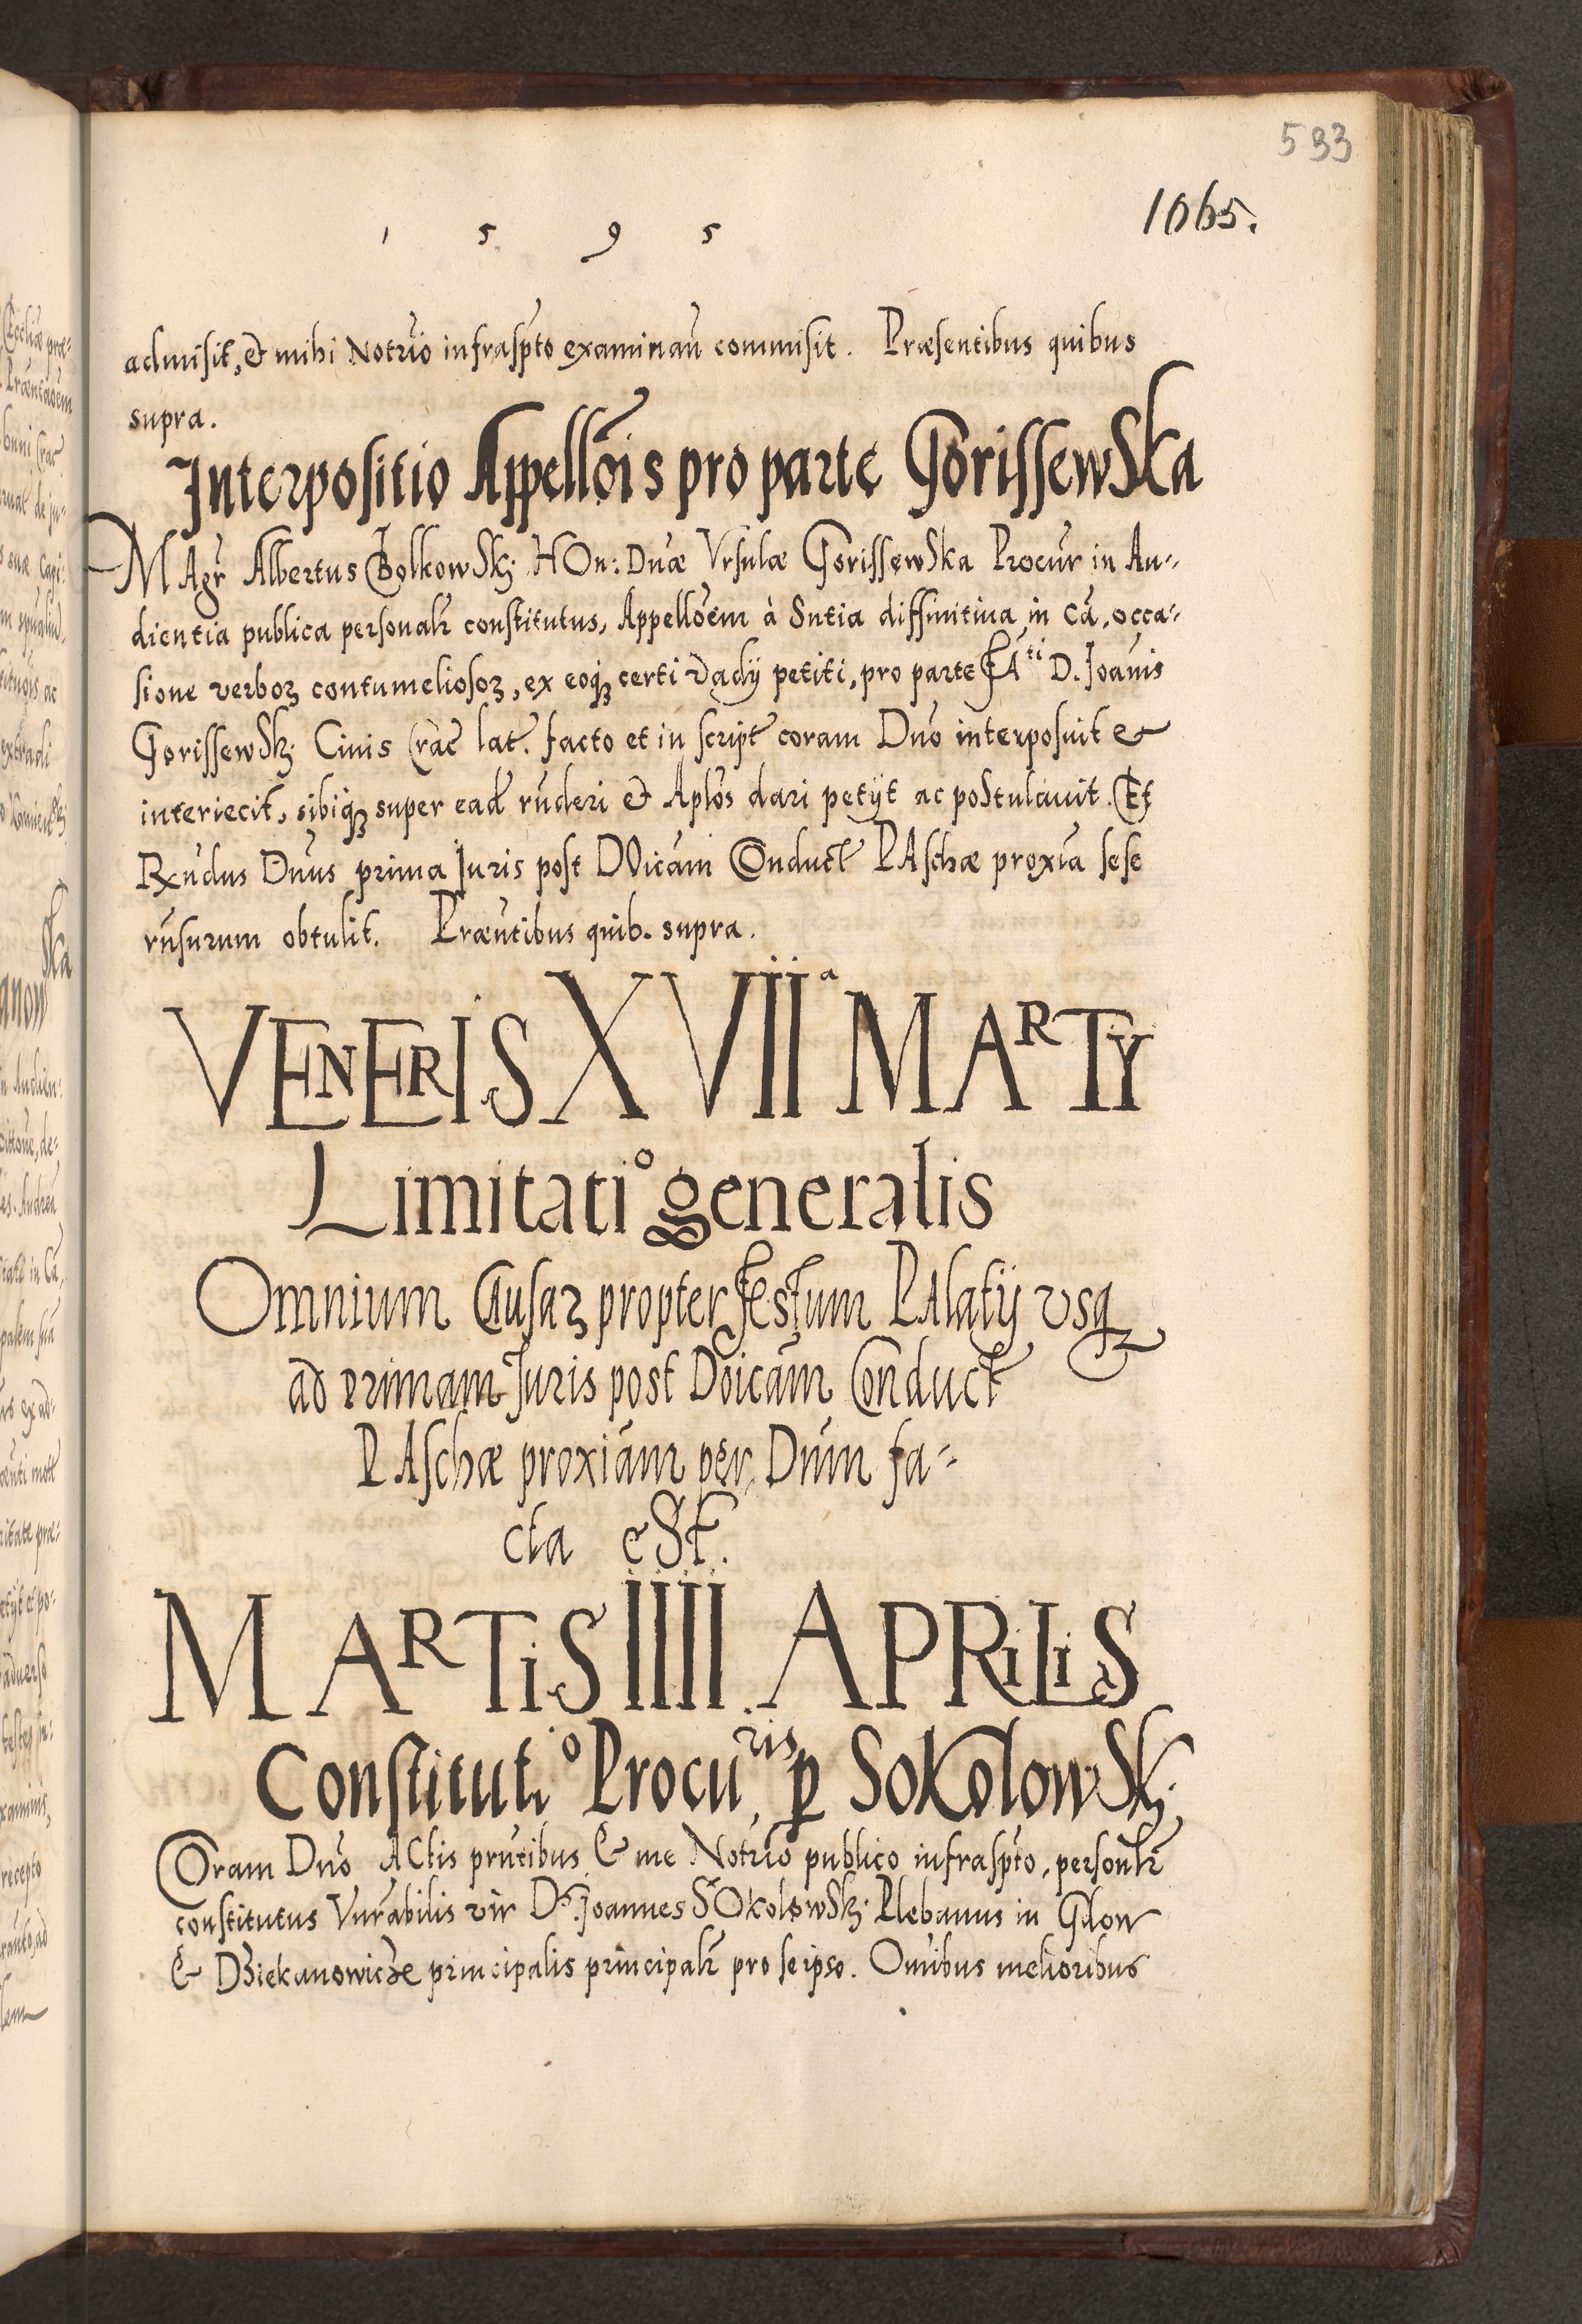 533
1065.
1 5 9 5
admisit, et mihi Notrio infraspto examinan commisit. Præsentibus quibus
supra.
Interpositio Appellois pro parte GorissewSka
MAgr Albertus BolkowSkj HOn: Dnæ Vrsulæ GorissewSka Procur in Au-
dientia publica personalr constitutus, Appelloem à Sntia diffinitiua in Ca, occa-
sione verboꝝ contumeliosoꝝ, ex eoqꝫ certi vadij petiti, pro parte FAti D. Joanis
GorissewSkj Ciuis Crac lat. facto et in script coram Dno interposuit et
interiecit, sibiqꝫ super ead rnderi et Aplos dari petijt ac poStulauit. Et
Rxndus Dnus prima Juris post DOicam Conduct PAschæ proxia sese
rnsurum obtulit. Præntibus quib. supra.
VENERIS XVIIa MARTY
Limitatio generalis
Omnium Causaꝝ propter festum PAlatij vsqꝫ
ad primam Juris post Doicam Conduct
PAschæ proxiam per Dnm fa-
cta eSt.
MARTIS IIII APRILIS
Constitutio Procuris ꝑ SoKolowSkj
Coram Dno ACtis prntibus & me Notrio publico infraspto, personlr
constitutus Vnrabilis vir Ds. Joannes SOkolowSkj Plebanus in Gdow
& Dziekanowicze principalis principalr pro seipso. Omibus melioribus